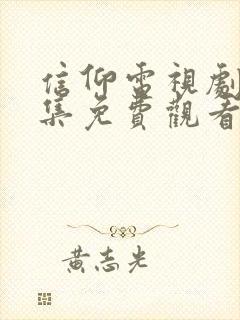 信仰電視劇
集免費觀看
黃志光